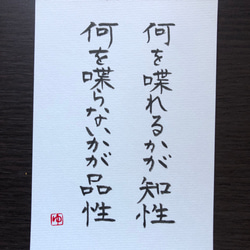 何を喋れるかが知性
何を喋らないかが品性
ゆ